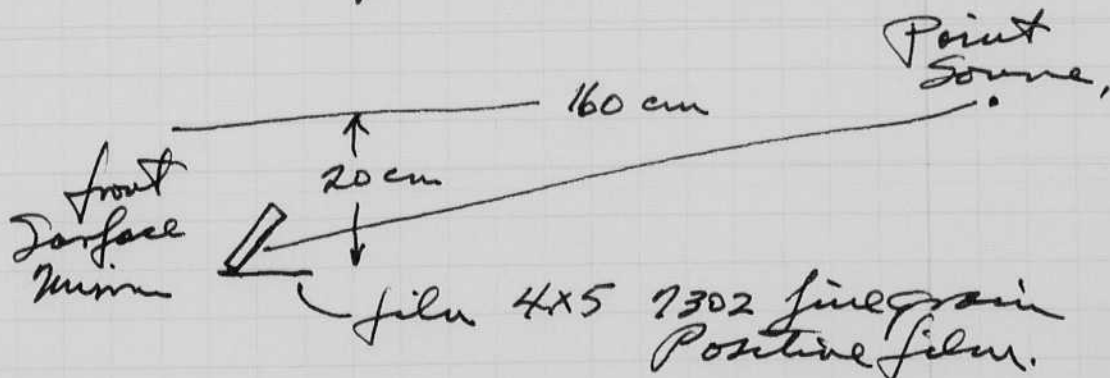 Point
Source,
160 cm
20 cm
front
Surface
Mirror
film 4x5 7302 fine grain
Positive film.